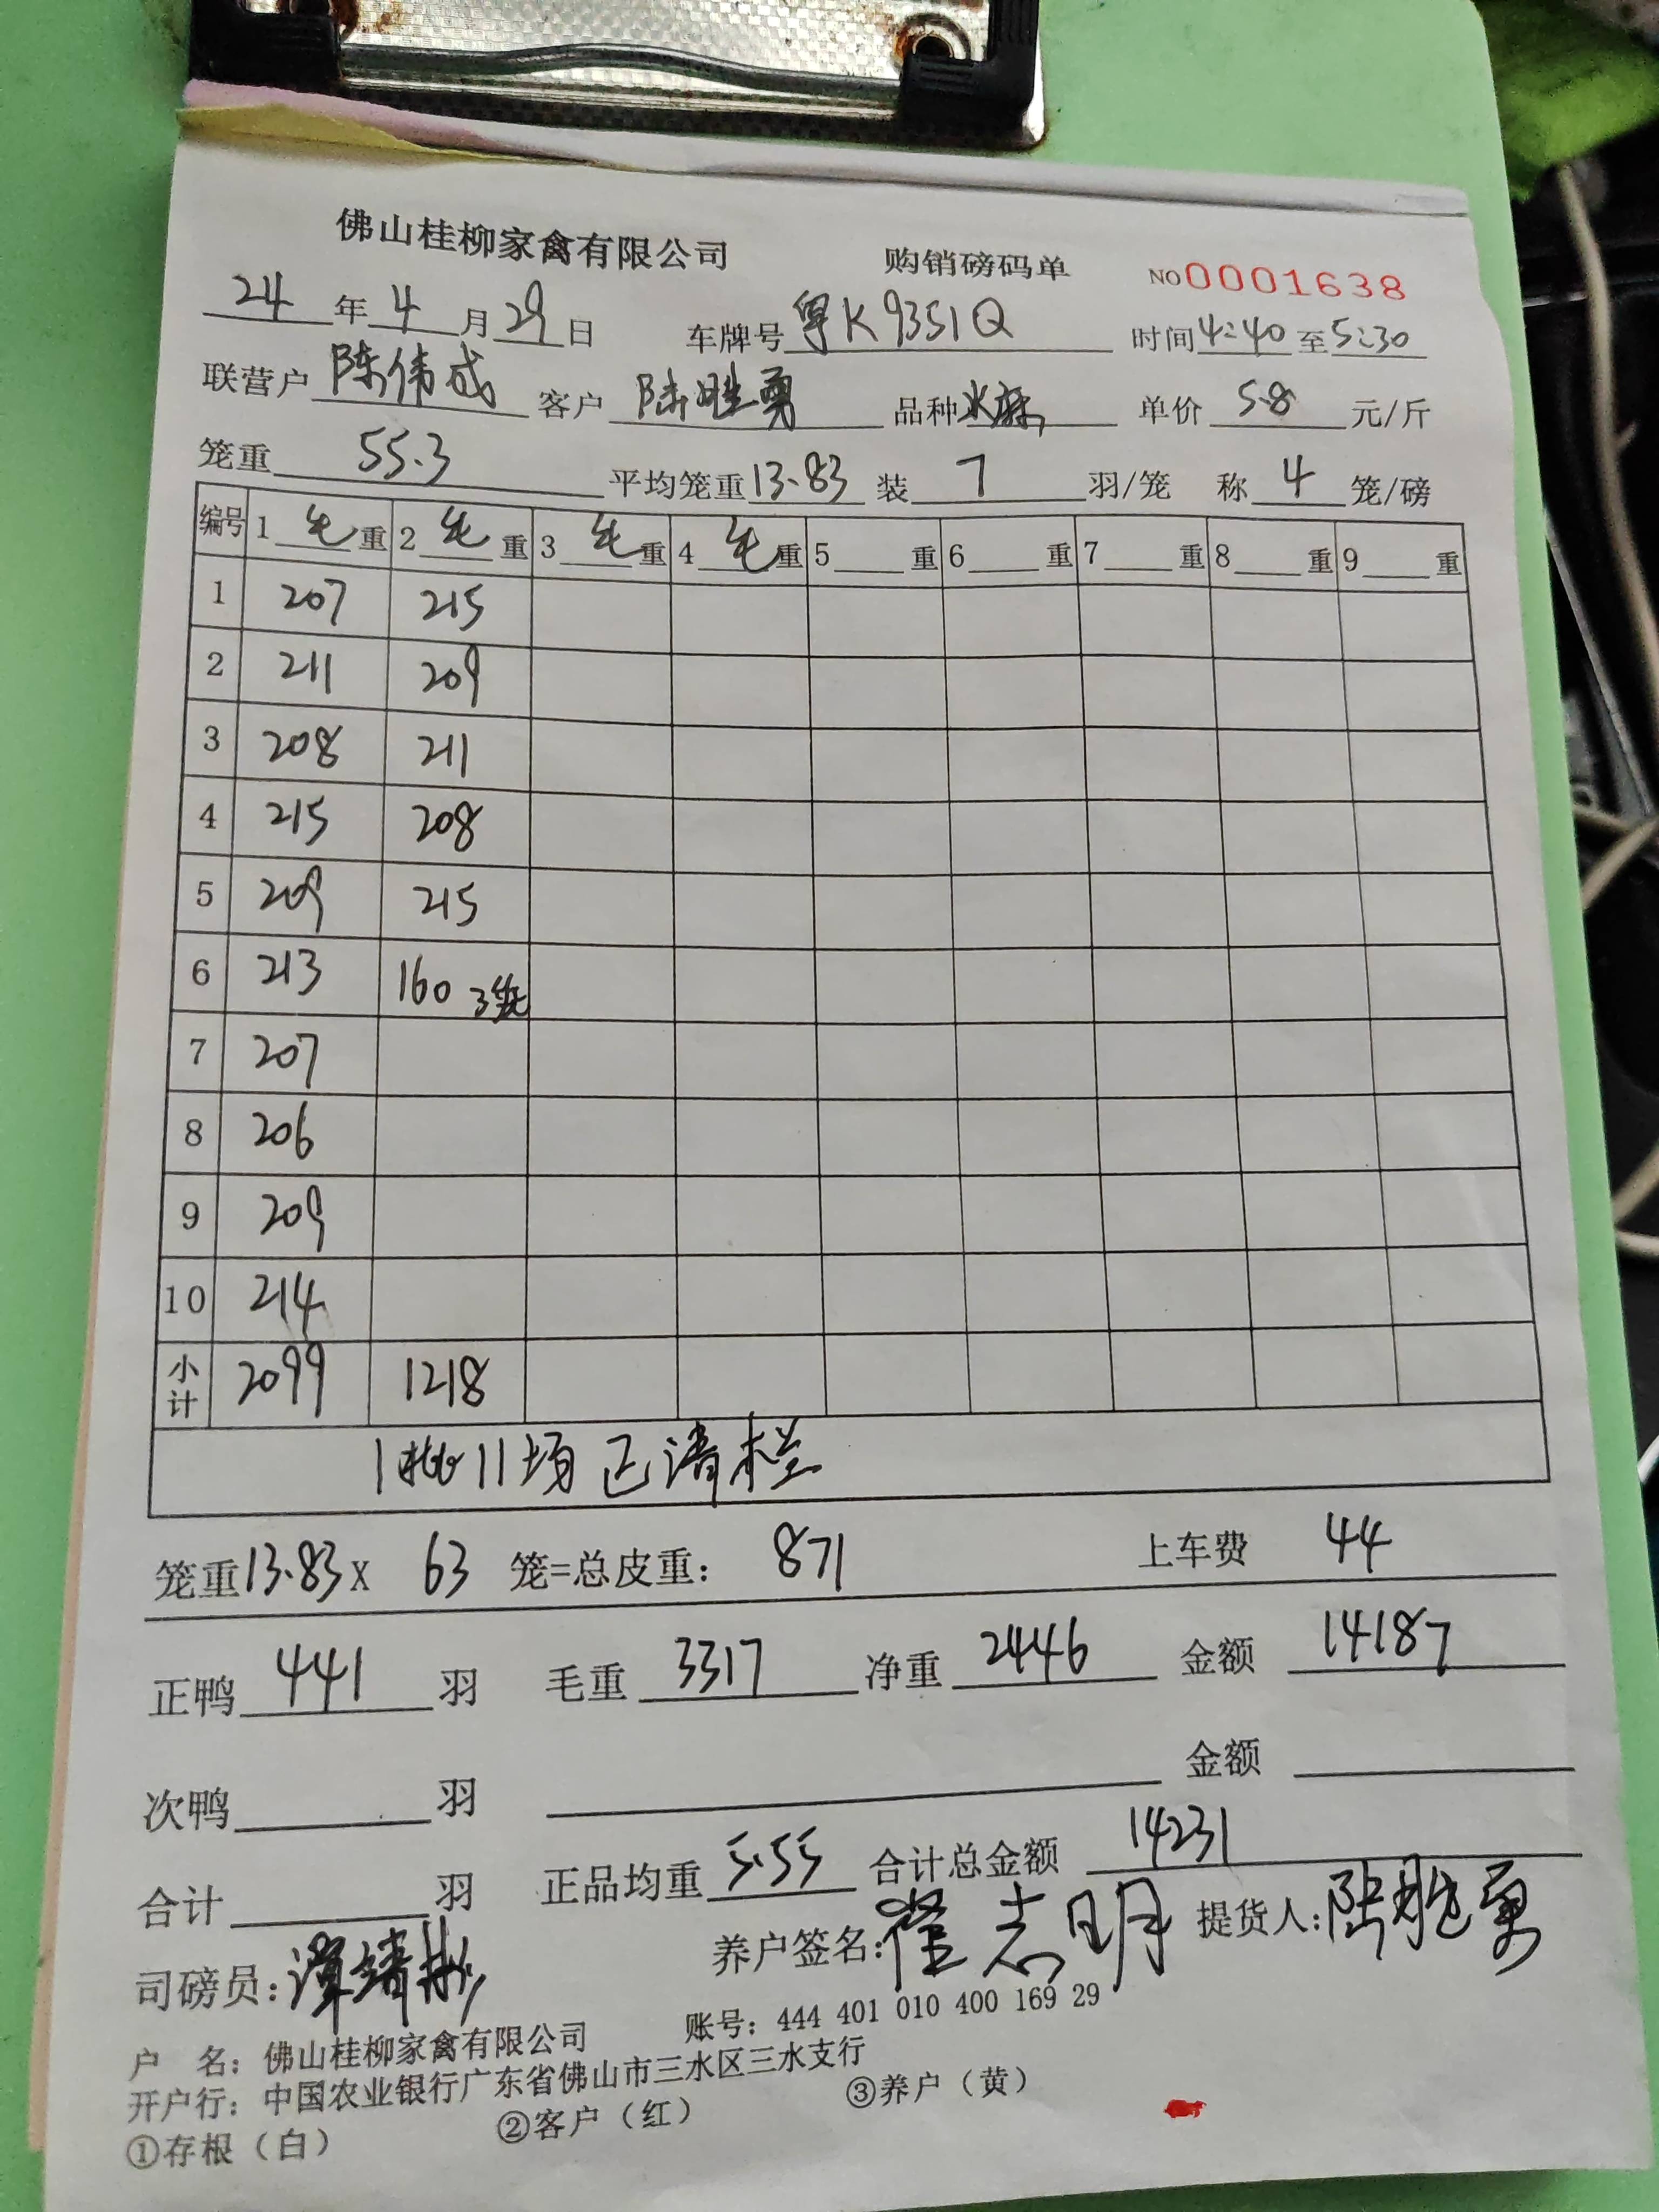 佛山桂柳家禽有限公司 购销磅码单 NO 0001638
24年4月29日 车牌号 粤K9351Q 时间 4:40 至 5:30
联营户 陈伟成 客户 陆胜勇 品种 水麻 单价 5.8 元/斤
笼重 55.3 平均笼重 13.83 装 7 羽/笼 称 4 笼/磅
编号 1 毛 重 2 毛 重 3 毛 重 4 毛 重 5 重 6 重 7 重 8 重 9 重
1 207 215
2 211 209
3 208 211
4 215 208
5 209 215
6 213 160 3笼
7 207
8 206
9 209
10 214
小计 2099 1218
1批11场 已清栏
笼重 13.83 X 63 笼=总皮重: 871 上车费 44
正鸭 441 羽 毛重 3317 净重 2446 金额 14187
次鸭 羽 金额
合计 羽 正品均重 5.55 合计总金额 14231
司磅员: 养户签名: 志明 提货人: 陆胜勇
户 名: 佛山桂柳家禽有限公司 账号: 444 401 010 400 169 29
开户行: 中国农业银行广东省佛山市三水区三水支行
①存根（白） ②客户（红） ③养户（黄）